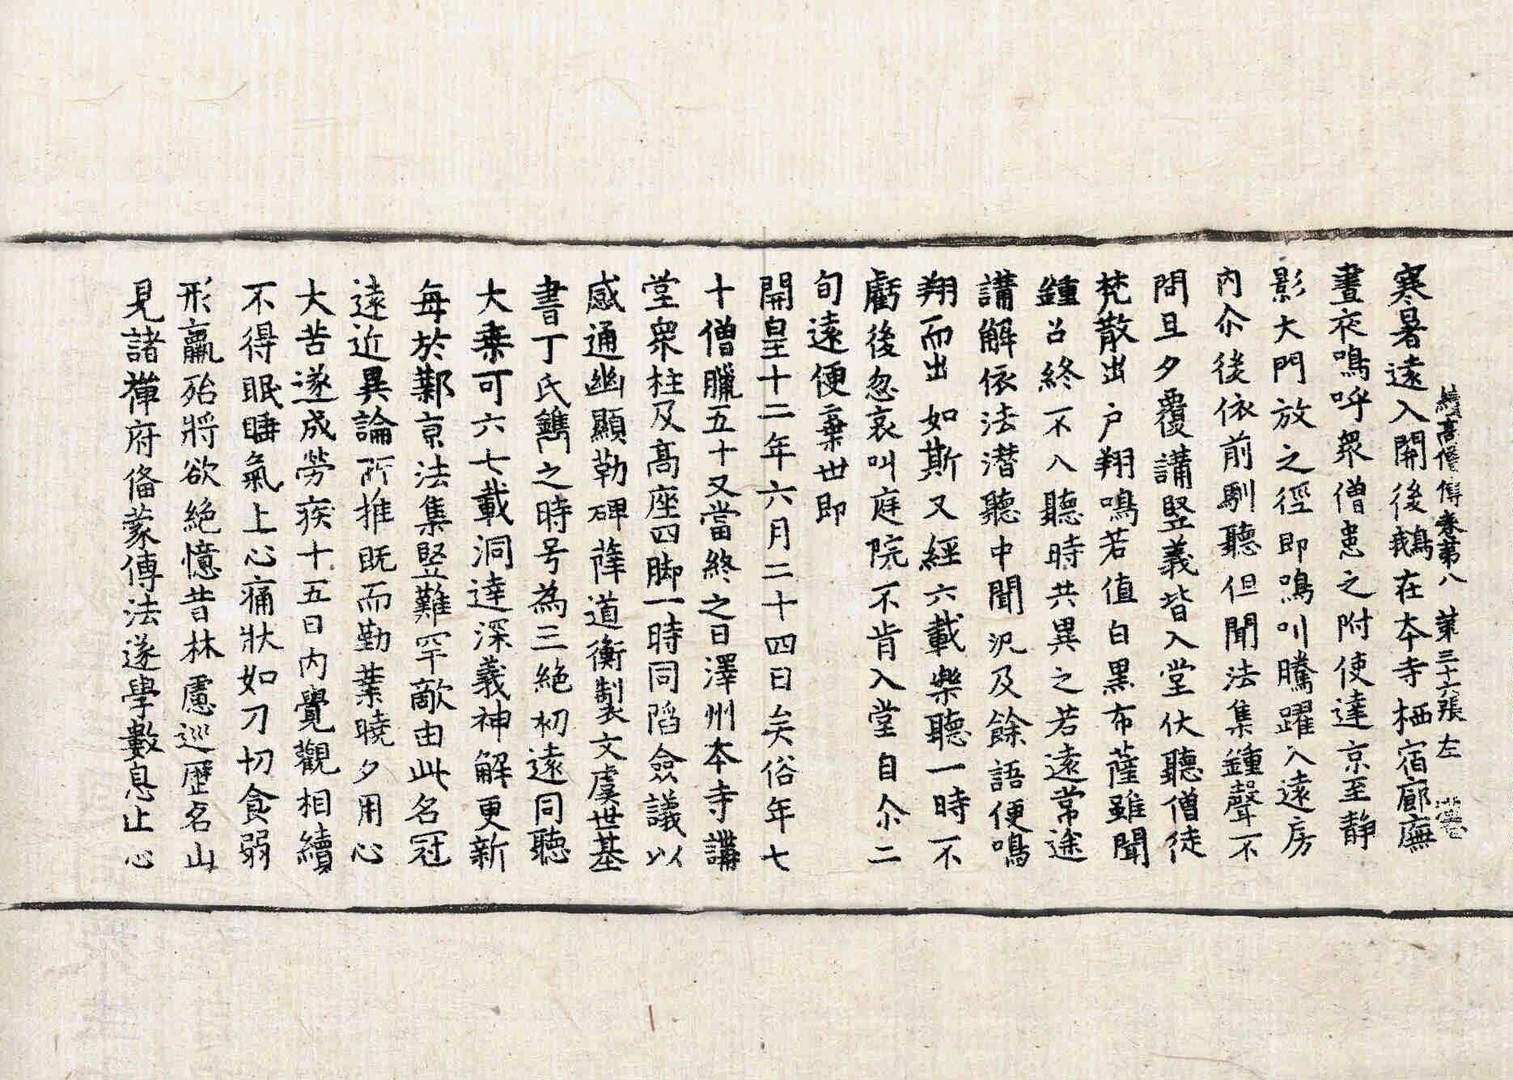 續高僧傳卷第八 第三十六張 左
寒暑遠入開後鵝在夲寺栖宿廊廡
晝夜鳴呼衆僧患之附使達京至静
影大門放之徑即鳴叫騰躍入遠房
内尒後依前馴聽但聞法集鍾聲不
問旦夕覆講竪義皆入堂伏聽僧徒
梵散出户翔鳴若值白黑布薩雖聞
鍾召終不入聽時共異之若遠常途
講解依法潜聽中聞況及餘語便鳴
翔而出如斯又經六載樂聽一時不
虧後忽哀叫庭院不肯入堂自尒二
旬遠便棄世即
開皇十二年六月二十四日矣俗年七
十僧臘五十又當終之日澤州夲寺講
堂衆柱及髙座四脚一時同䧟僉議以
感通幽顯勒碑薛道衡製文虞世基
書丁氏鐫之時号為三絶初遠同聽
大乗可六七載洞逹深義神解更新
每於鄴京法集竪難罕敵由此名冠
遠近異論所推既而勤業曉夕用心
大苦遂成勞疾十五日内覺觀相續
不得眠睡氣上心痛狀如刀切食弱
形羸殆將欲絶憶昔林慮巡歷名山
見諸禪府俻蒙傳法遂學數息止心